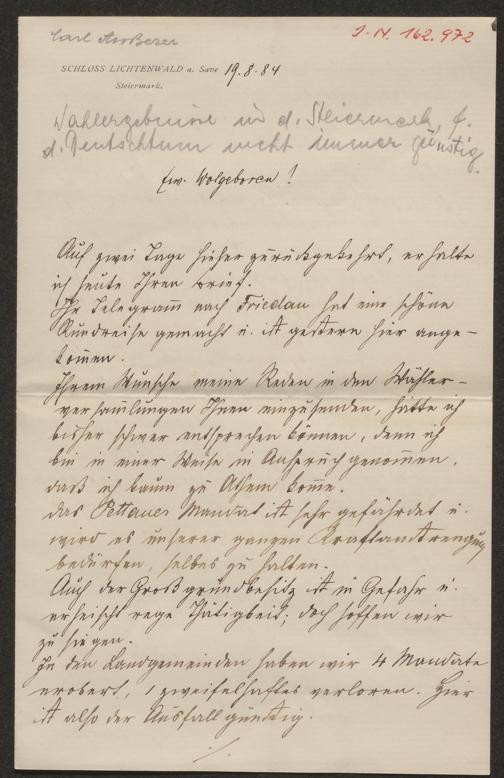 Carl Außerer
I.N. 162.972
SCHLOSS LICHTENWALD a. Save 19.8.84
Steiermark.
Wahlergebnisse in d. Steiermark, f.
d. Deutschtum nicht immer günstig.
Ew. Wolgeboren!
Auf zwei Tage hieher zurückgekehrt, erhalte
ich heute Ihren Brief.
Ihr Telegram̅ nach Friedau hat eine schöne
Rundreise gemacht u. ist gestern hier ange-
kom̅en.
Ihrem Wunsche meine Reden in den Wähler-
versam̅lungen Ihnen einzusenden, hätte ich
bisher schwer entsprechen können, denn ich
bin in einer Weise in Anspruch genom̅en,
daß ich kaum zu Athem kom̅e.
Das Pettauer Mandat ist sehr gefährdet u.
wird es unserer ganzen Kraftanstrengung
bedürfen, selbes zu halten.
Auch der Großgrundbesitz ist in Gefahr u.
erheischt rege Thätigkeit; doch hoffen wir
zu siegen.
In den Landgemeinden haben wir 4 Mandate
erobert, 1 zweifelhaftes verloren. Hier
ist also der Ausfall günstig.
./.